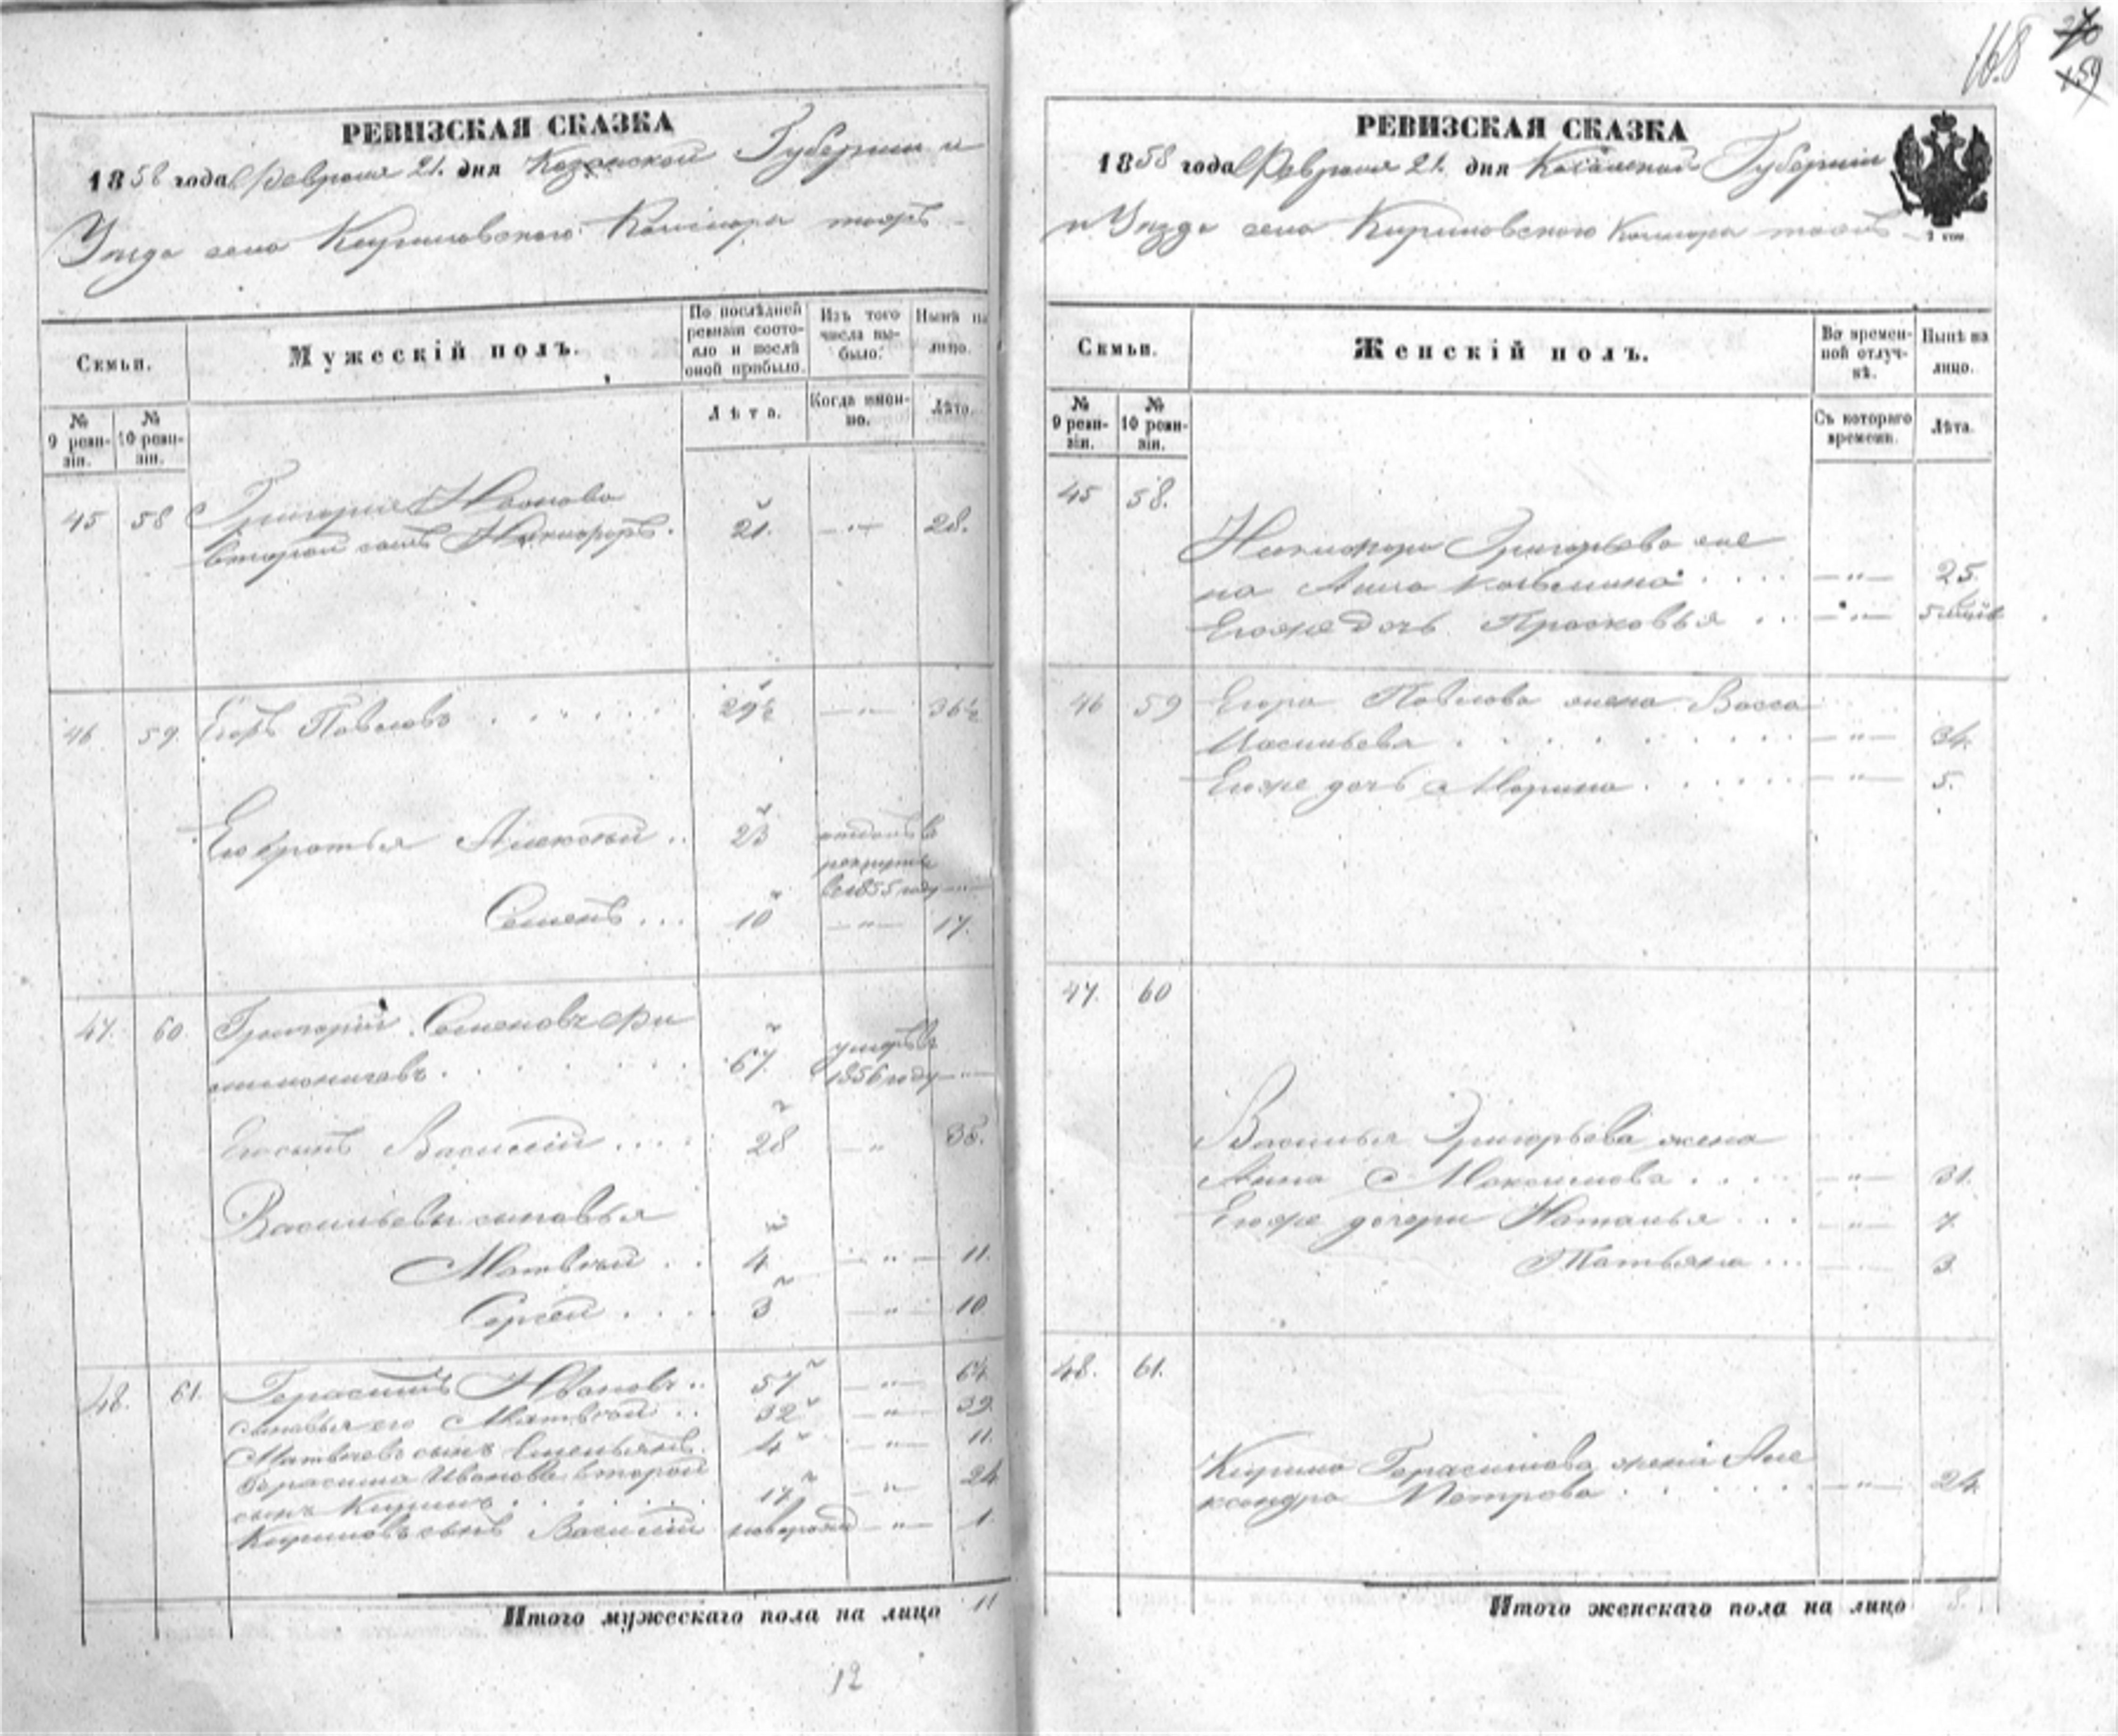 168
159
РЕВИЗСКАЯ СКАЗКА
1858 года Февраля 21. дня Казанской Губернии и
Уезда села Кириловского Кошпора тожъ
Семьи.
Мужескій полъ.
По послѣдней ревизіи состояло и послѣ оной прибыло.
Изъ того числа выбыло.
Нынѣ на лицо.
№ 9 ревизіи.
№ 10 ревизіи.
Лѣта.
Когда именно.
Лѣта.
45 58 Григорія Иванова
второй сынъ Никифоръ. 21. — " — 28.
46 59. Егоръ Павловъ 29½ — " — 36½
Его братья Алексѣй .. 23 отданъ въ
рекруты
въ 1855 году
Семенъ ... 10 — " — 17.
47. 60. Григорій Семеновъ
67. умеръ въ
1856 году
Его сынъ Василій .... 28 — " 35.
Васильевы сыновья
Матвѣй . . 4 — " — 11.
Сергей .... 3 — " — 10
48. 61. Герасимъ Ивановъ .. 57 — " — 64
сыновья его Матвѣй .. 32 — " — 39.
Матвѣевъ сынъ Емельянъ 4 — " — 11.
Герасима Иванова второй
сынъ Кирилъ 17 — " — 24
Кириловъ сынъ Василій новорожд — " — 1
Итого мужескаго пола на лицо 11
12
РЕВИЗСКАЯ СКАЗКА
1858 года Февраля 21. дня Казанской Губерніи
и Уезда села Кириловского тожъ
Семьи.
Женскій полъ.
Во временной отлучкѣ.
Нынѣ на лицо.
№ 9 ревизіи.
№ 10 ревизіи.
Съ котораго времени.
Лѣта.
45 58.
Никифора Григорьева же
на Анна Козьмина . . . . — " — 25.
Егоже дочь Прасковья . .. — " — 5
46 59 Егора Павлова жена Васса
Васильева — " — 34.
Егоже дочь Марина — " — 5.
47. 60
Василья Григорьева жена
Анна Максимова . . . . — " — 31.
Егоже дочери Наталья ... — " — 7
Татьяна ... 3
48. 61.
Кирила Герасимова жена Але
ксандра Петрова — " — 24
Итого женскаго пола на лицо 8.